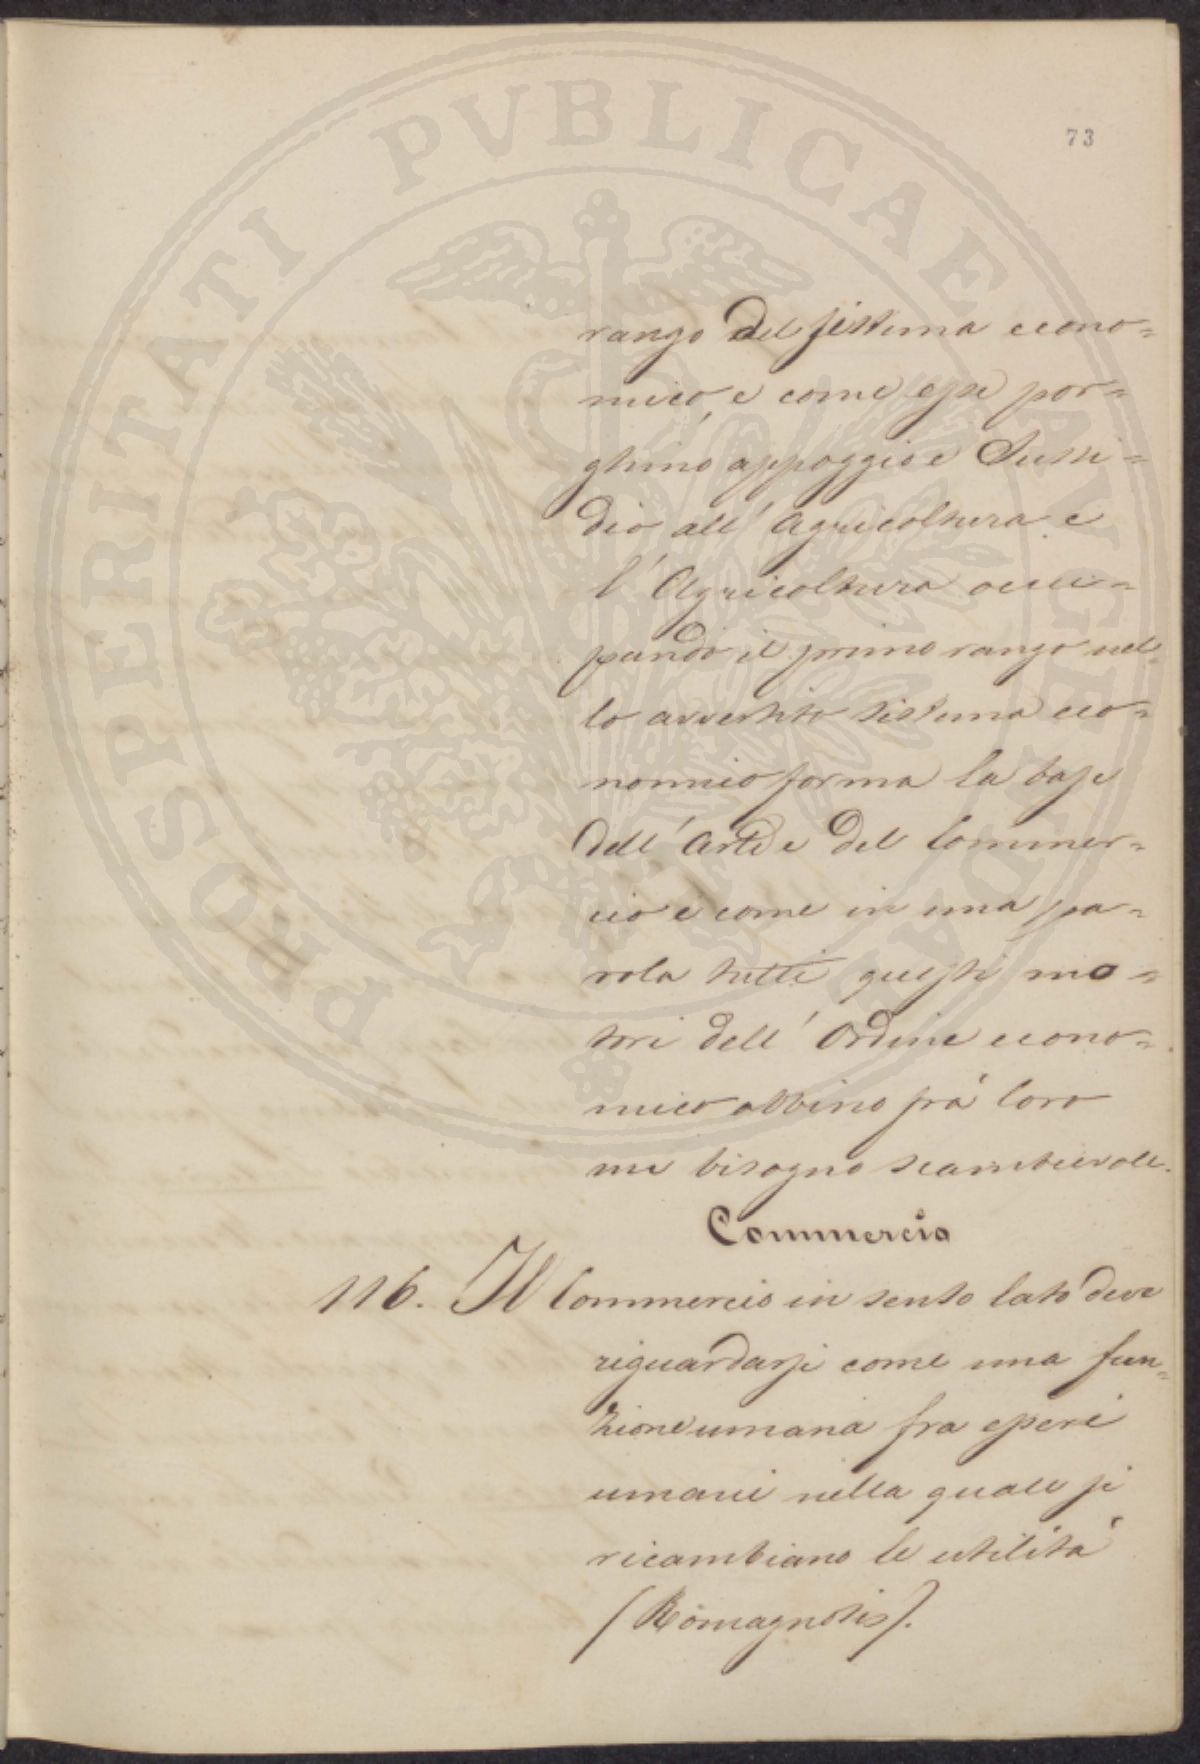 73
PROSPERITATI PUBLICAE AUGENDAE
rango del sistema econo=
mico, e come esse por=
ghino appoggio e Sussi=
dio all' Agricoltura e
l' Agricoltura occu=
pando il primo rango nel=
lo avvertito sistema eco=
nomico forma la base
dell' Arti e del Commer=
cio e come in una pa=
rola tutti questi mo=
tori dell' Ordine econo=
mico abbino frà loro
un bisogno scambievole.
Commercio
116. Il Commercio in senso lato deve
riguardarsi come una fun=
zione umana fra esseri
umani nella quale si
ricambiano le utilità
(Romagnosis).